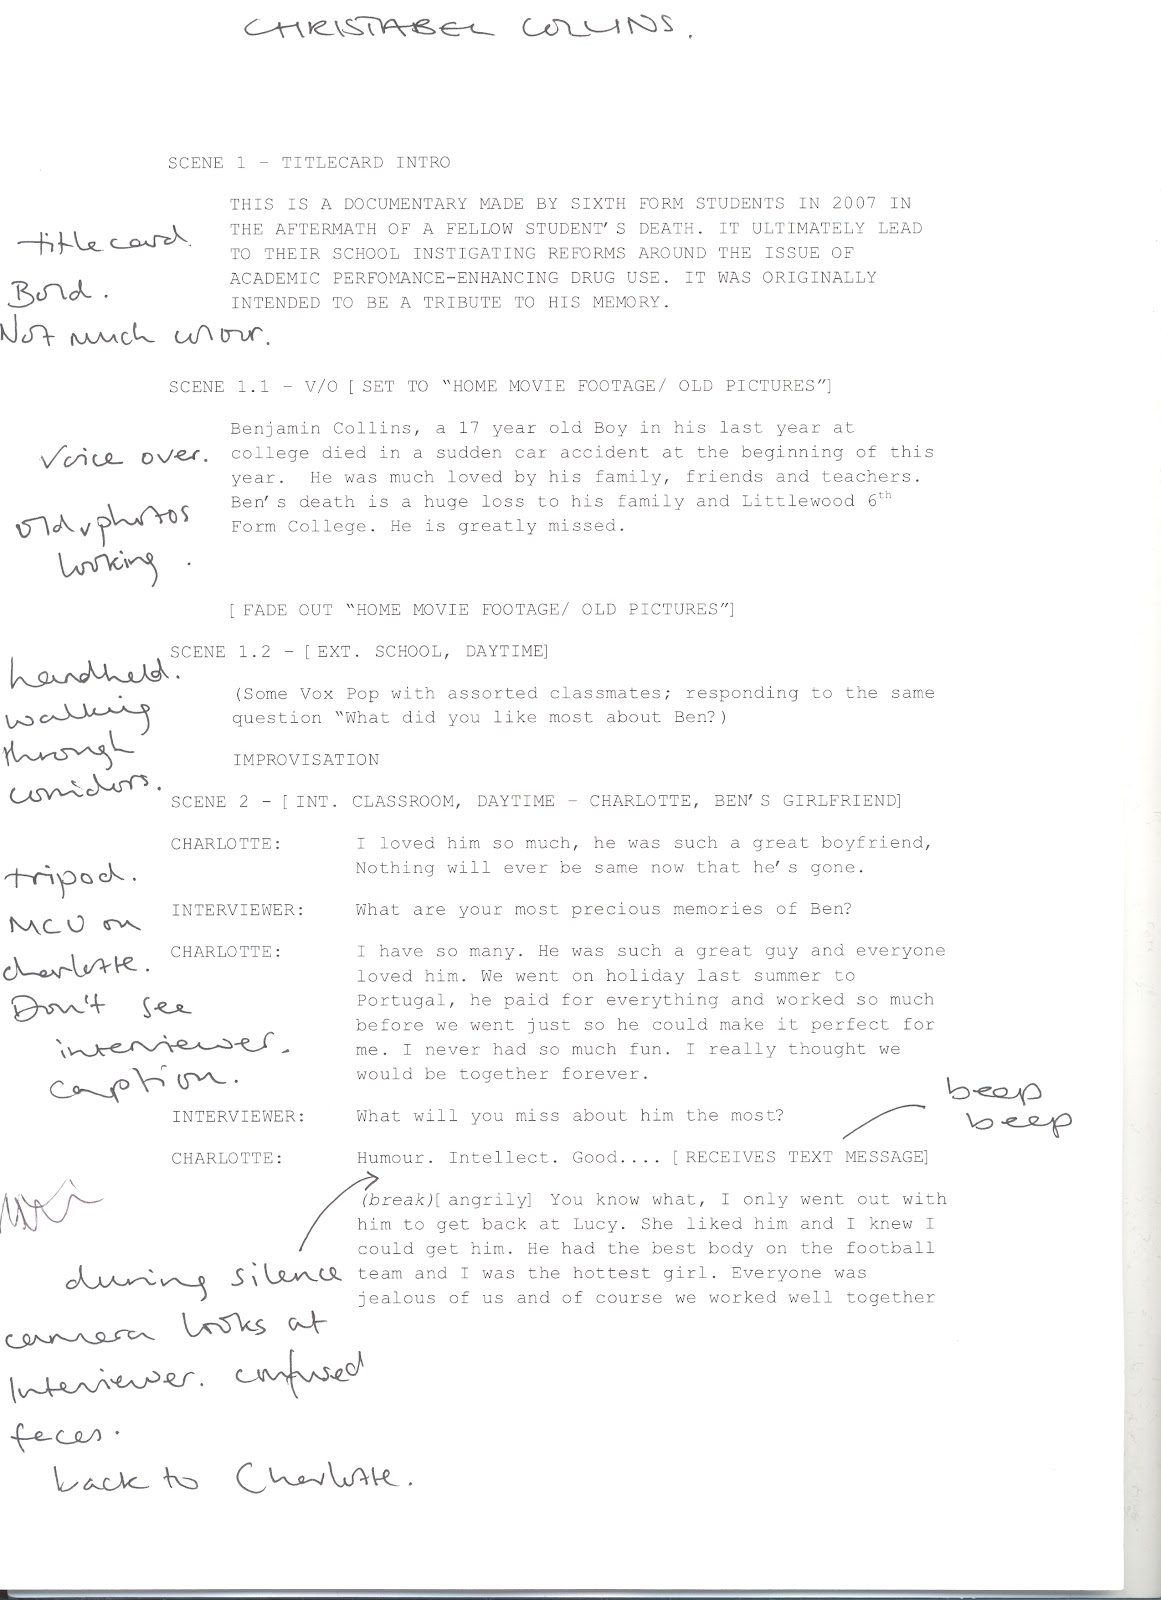 CHRISTABEL COLLINS.
SCENE 1 - TITLECARD INTRO
THIS IS A DOCUMENTARY MADE BY SIXTH FORM STUDENTS IN 2007 IN
THE AFTERMATH OF A FELLOW STUDENT'S DEATH. IT ULTIMATELY LEAD
TO THEIR SCHOOL INSTIGATING REFORMS AROUND THE ISSUE OF
ACADEMIC PERFOMANCE-ENHANCING DRUG USE. IT WAS ORIGINALLY
INTENDED TO BE A TRIBUTE TO HIS MEMORY.
titlecard.
Bold.
Not much colour.
SCENE 1.1 - V/O [SET TO "HOME MOVIE FOOTAGE/ OLD PICTURES"]
Benjamin Collins, a 17 year old Boy in his last year at
college died in a sudden car accident at the beginning of this
year.  He was much loved by his family, friends and teachers.
Ben's death is a huge loss to his family and Littlewood 6th
Form College. He is greatly missed.
Voice over.
old photos
looking.
[FADE OUT "HOME MOVIE FOOTAGE/ OLD PICTURES"]
SCENE 1.2 - [EXT. SCHOOL, DAYTIME]
(Some Vox Pop with assorted classmates; responding to the same
question "What did you like most about Ben?)
IMPROVISATION
handheld.
walking
through
corridors.
SCENE 2 - [INT. CLASSROOM, DAYTIME - CHARLOTTE, BEN'S GIRLFRIEND]
CHARLOTTE: I loved him so much, he was such a great boyfriend,
Nothing will ever be same now that he's gone.
INTERVIEWER: What are your most precious memories of Ben?
CHARLOTTE: I have so many. He was such a great guy and everyone
loved him. We went on holiday last summer to
Portugal, he paid for everything and worked so much
before we went just so he could make it perfect for
me. I never had so much fun. I really thought we
would be together forever.
tripod.
MCU on
charlotte.
Don't see
interviewer.
caption.
INTERVIEWER: What will you miss about him the most?
beep
beep
CHARLOTTE: Humour. Intellect. Good.... [RECEIVES TEXT MESSAGE]
(break)[angrily] You know what, I only went out with
him to get back at Lucy. She liked him and I knew I
could get him. He had the best body on the football
team and I was the hottest girl. Everyone was
jealous of us and of course we worked well together
during silence
camera looks at
Interviewer. confused
faces.
back to Charlotte.